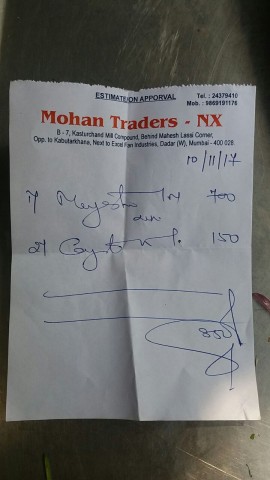 ESTIMATE ON APPORVAL
Tel. : 24379410
Mob. : 9869191176
Mohan Traders - NX
B - 7, Kasturchand Mill Compound, Behind Mahesh Lassi Corner,
Opp. to Kabutarkhana, Next to Excel Industries, Dadar (W), Mumbai - 400 028
10/11/17
1) 700
2) 150
850